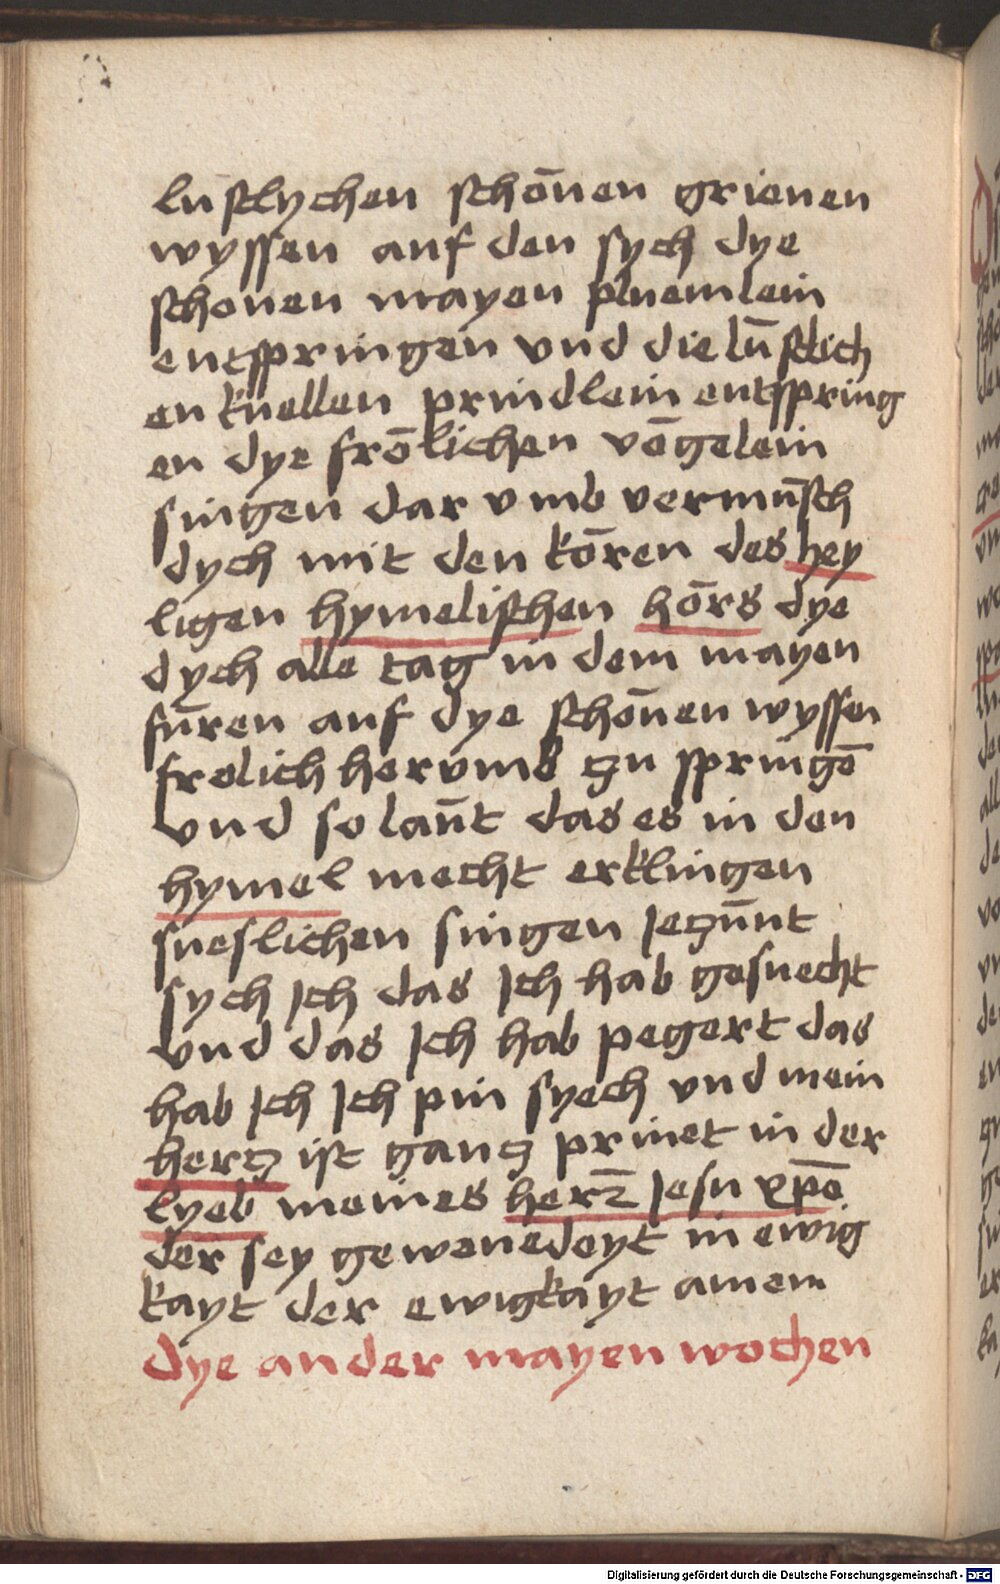 lustlychen schōnen grienen
wyssen auf den sych dye
schonen mayen pluemlein
entspringen vnd die lūstlich
en kuellen prindlein entspring
en dye frōlichen vōgelein
singen dar vmb vermūsch
dych mit den kōren des hey
ligen hymelischen hōrs dye
dych alle tag in dem mayen
fūren auf dye schōnen wyssen
frelich hervmb zu springē
vnd so laūt das es in den
hymel mecht erklingen
sueslichen singen Jezūnt
sych Jch das Jch hab gesuecht
vnd das Jch hab pegert das
hab Jch Jch pin syech vnd mein
herz ist ganz prinet in der
lyeb meines herz̄ Jesu xp̄e
der sey gewenedeyt in ewig
kayt der ewigkayt amem
dye ander mayen wochen
Digitalisierung gefördert durch die Deutsche Forschungsgemeinschaft - DFG